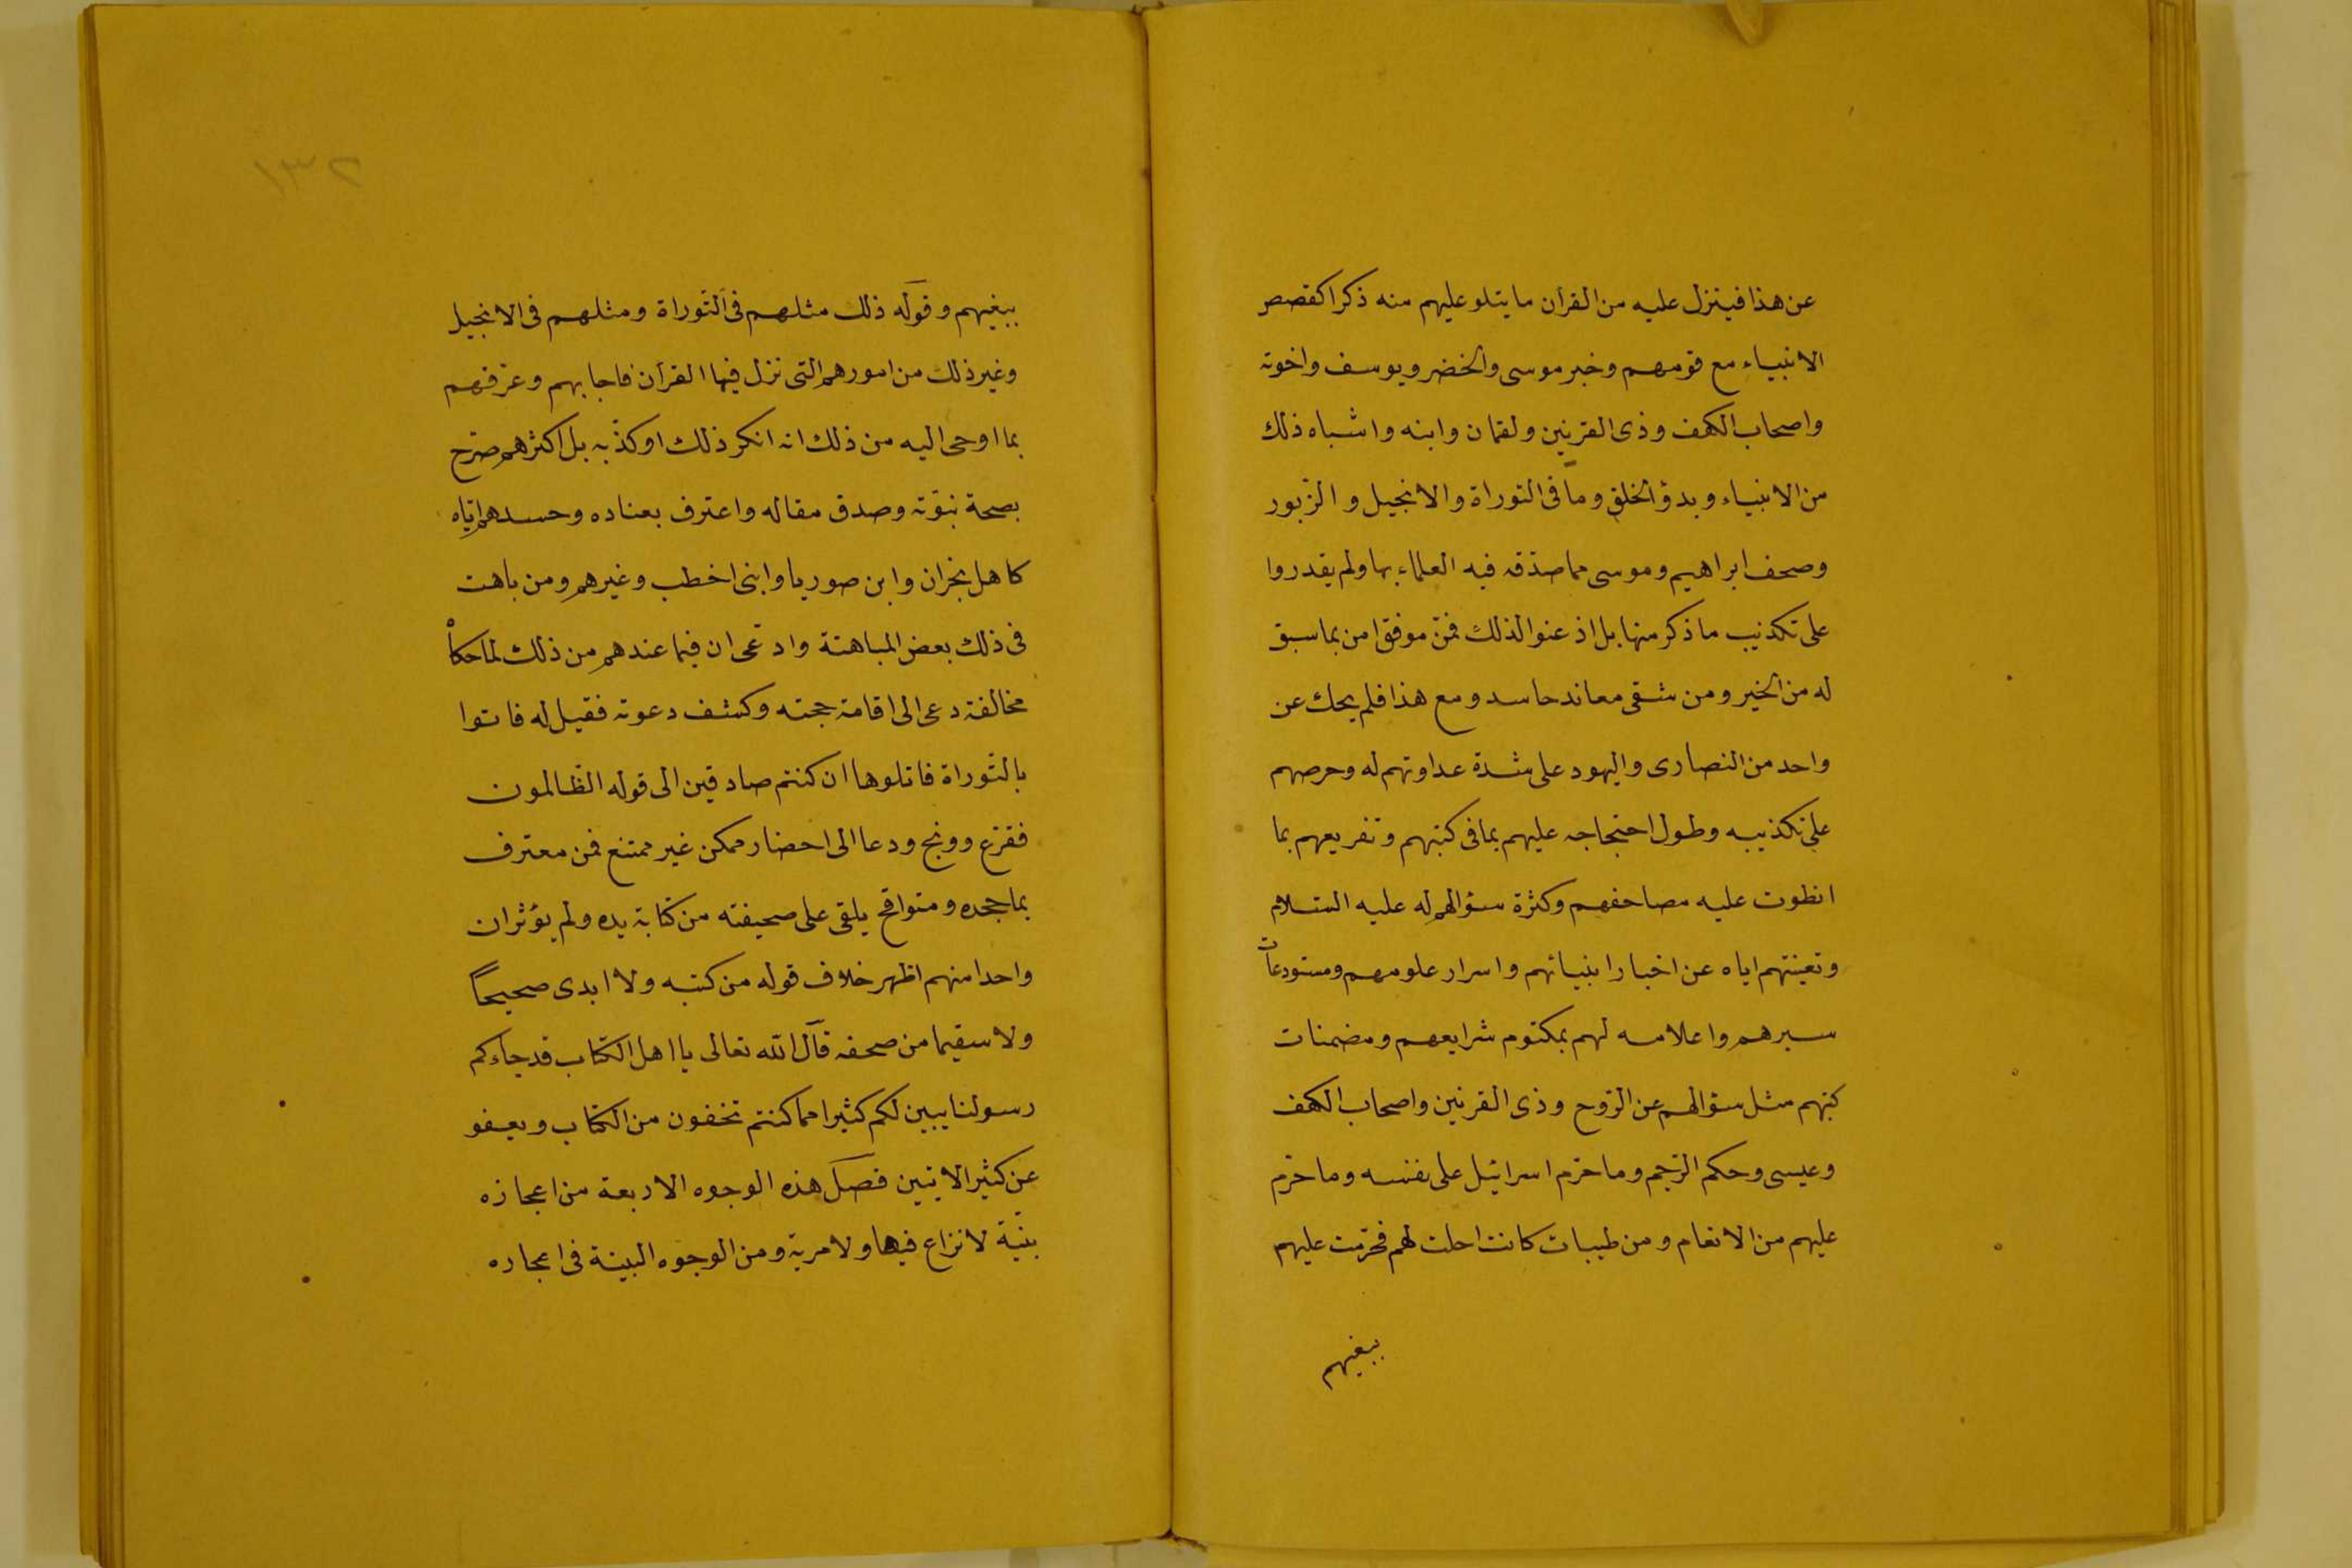 عن هذا فينزل عليه من القرآن ما يتلو عليهم منه ذكرا كقصص
الانبياء مع قومهم وخبر موسى والخضر ويوسف واخوته
واصحاب الكهف وذى القرنين ولقمان وابنه واشباه ذلك
من الانبياء وبدؤ الخلق وما فى التوراة والانجيل والزّبور
وصحف ابراهيم وموسى مما صدّقه فيه العلماء بها ولم يقدروا
على تكذيب ما ذكر منها بل اذعنوا لذلك فمن موفق امن بما سبق
له من الخير ومن شقى معاند حاسد ومع هذا فلم يحك عن
واحد من النصارى واليهود على شدة عداوتهم له وحرصهم
على تكذيبه وطول احتجاجه عليهم بما فى كتبهم وتفريعهم بما
انطوت عليه مصاحفهم وكثرة سؤالهم له عليه السّلام
وتعنيتهم اياه عن اخبار انبيائهم واسرار علومهم ومستودعات
سيرهم واعلامه لهم بمكتوم شرايعهم ومضمنات
كتبهم مثل سؤالهم عن الرّوح وذى القرنين واصحاب الكهف
وعيسى وحكم الرّجم وما حرّم اسرائيل على نفسه وما حرّم
عليهم من الانعام ومن طيبات كانت احلت لهم فحرّمت عليهم
ببغيهم
١٣٢
ببغيهم وقوله ذلك مثلهم فى التّوراة ومثلهم فى الانجيل
وغير ذلك من امورهم التى نزل فيها القرآن فاجابهم وعرّفهم
بما اوحى اليه من ذلك انه انكر ذلك او كذّبه بل اكثرهم صرّح
بصحة نبوّته وصدق مقاله واعترف بعناده وحسدهم ايّاه
كاهل نجران وابن صوريا وابنى اخطب وغيرهم ومن باهت
فى ذلك بعض المباهتة وادّعى ان فيما عندهم من ذلك لما حكاه
مخالفة دعى الى اقامة حجته وكشف دعوته فقيل له فاتوا
بالتّوراة فاتلوها ان كنتم صادقين الى قوله الظّالمون
فقرّع وونج ودعا الى احضار ممكن غير ممتنع فمن معترف
بما جحده ومتواقح يلقى على صحيفته من كتابة يده ولم يؤثر ان
واحدا منهم اظهر خلاف قوله من كتبه ولا ابدى صحيحًا
ولا سقيما من صحفه قال الله تعالى يا اهل الكتاب قد جاءكم
رسولنا يبين لكم كثيرا مما كنتم تخفون من الكتاب ويعفو
عن كثير الايتين فصل هذه الوجوه الاربعة من اعجازه
بيّنة لا نزاع فيها ولا مرية ومن الوجوه البينة فى اعجاره